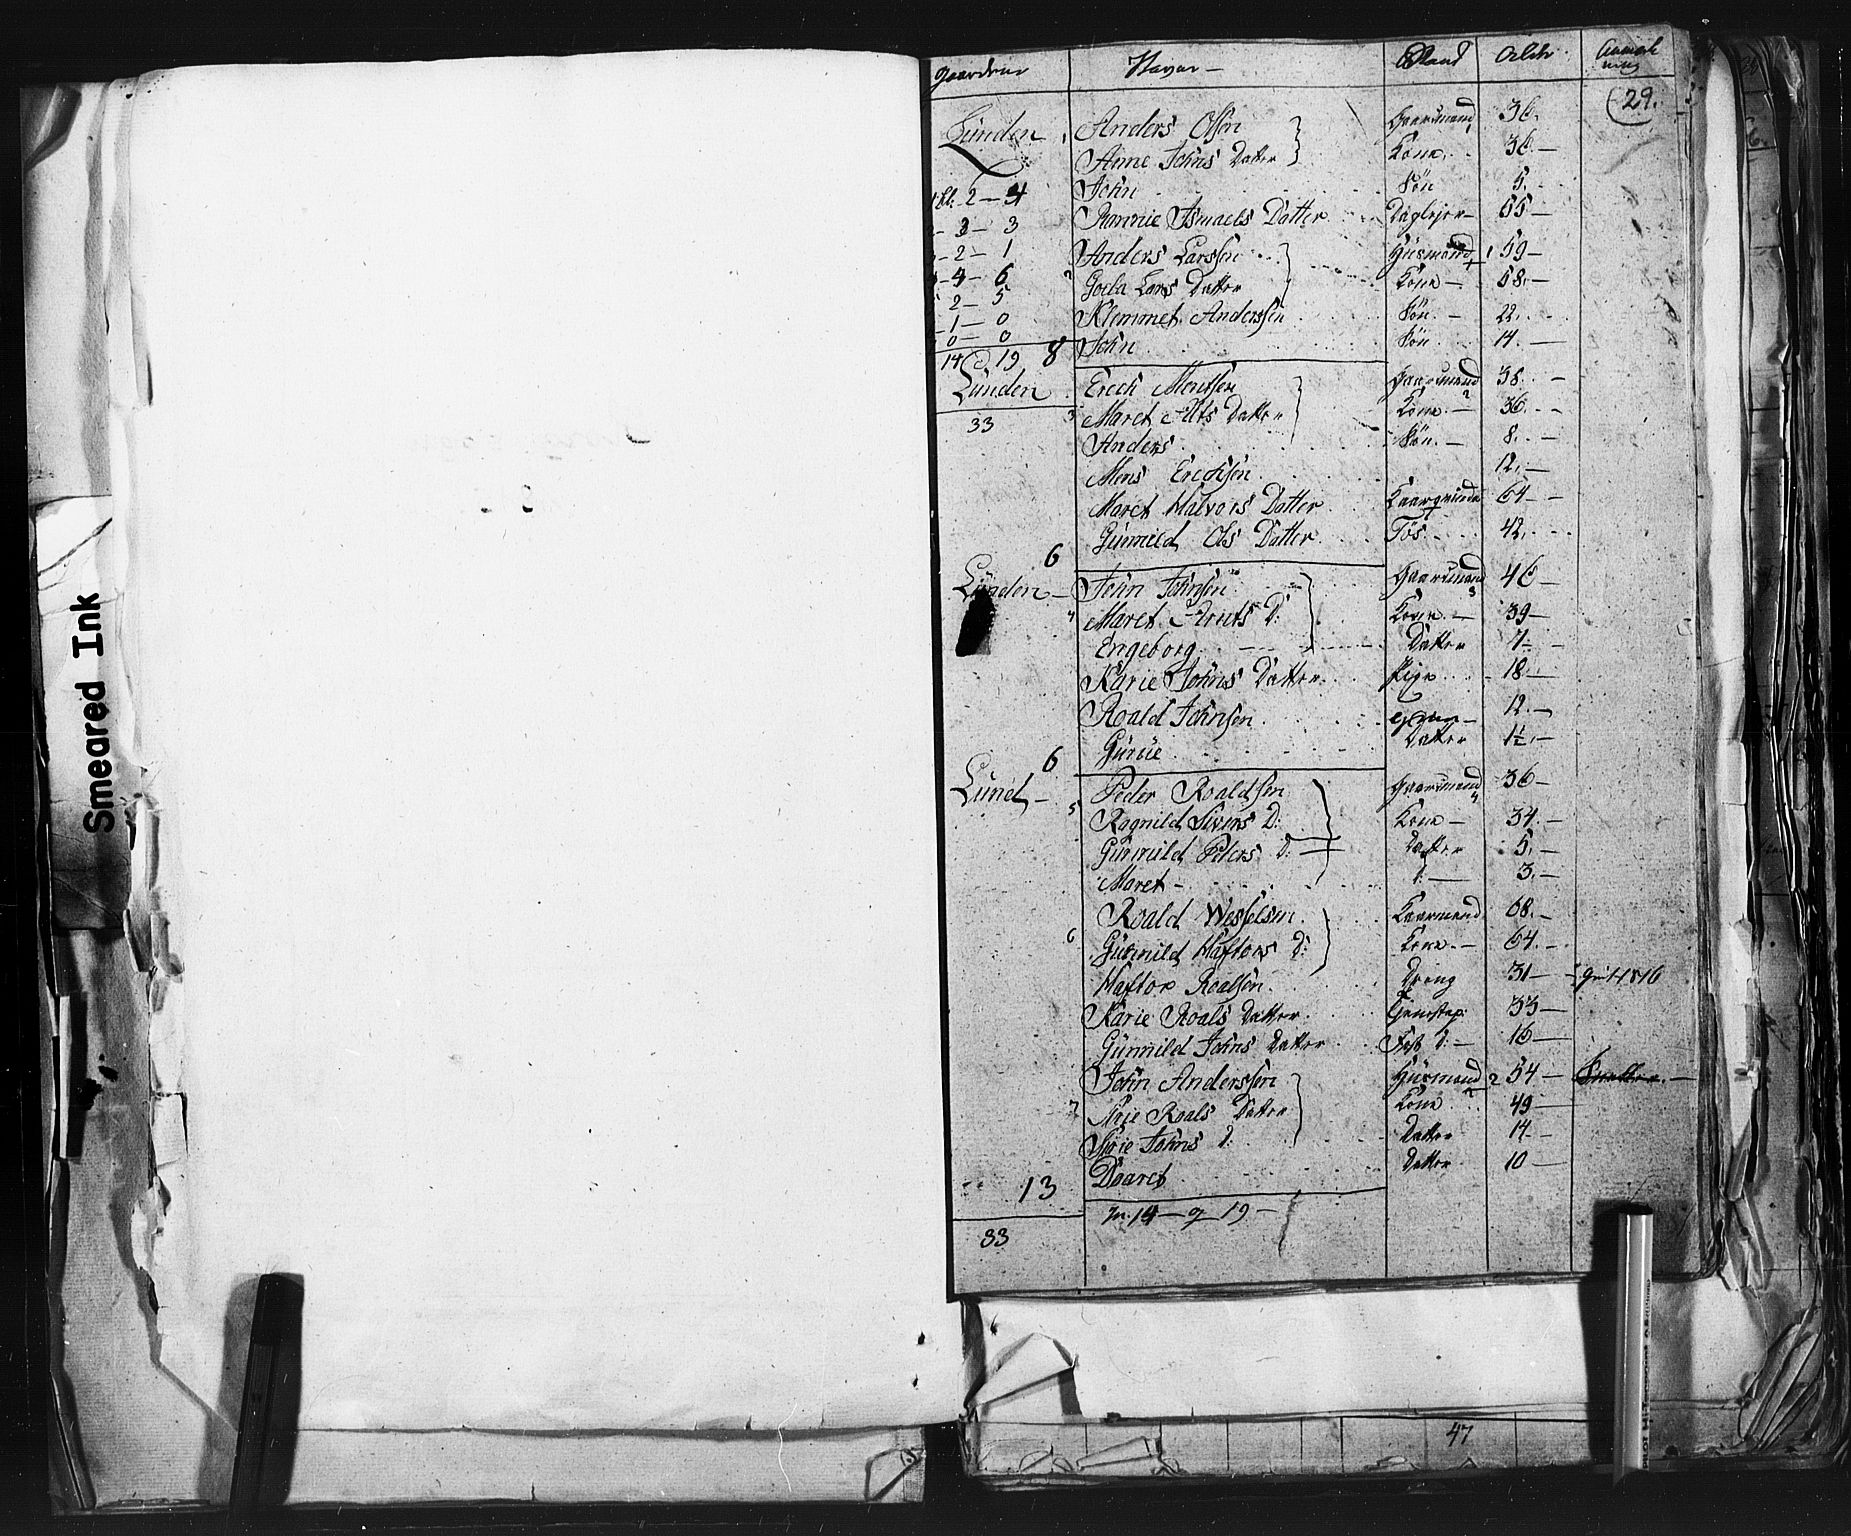 Smeared Ink
Gaardene Navne Stand Alder Anmerkning
29.
Lunden 1 Anders Olsen Gaardmand 1 36.
Anne Johns Datter Kone 36
2 — 4 John Søn 5.
3 — 3 Ismaels Datter 55
2 — 1 Anders Larssen Huusmand 1 59
4 — 6 2 Lars Datter Kone 58.
2 — 5 Klemmet Anderssen Søn 22.
1 — 0
0 — 0 John Søn 14.
14 19 8
Lunden Erech Mentsen Gaardmand 2 38
33 3 Maret Datter Kone 36
Anders Søn 8.
Mons Erechsen 12.
Maret Halvors Datter 64
6 Gunnild Ols Datter Tøs 42.
Lunden John Johnsen Gaardmand 3 46
4 Maret D: Kone 39
Engeborg Datter 7
Karie Johns Datter Pige 18
Roald Johnsen 12.
6 Gurue Datter 1½
Lund Peder Roaldsen Gaardmand 4 36
5 Ragnild Sivers D: Kone 34.
Gunnild Peders D: Datter 5.
Maret D: 3.
Roald Wesselsen Kaarmand 68.
6 Gunnild Haftors D: Kone 64.
Haftor Roalsen Dreng 31 1816
Karie Roals Datter 33
Gunnild Johns Datter 16
John Anderssen Huusmand 2 54
7 Roals Datter Kone 49
Johns D: Datter 14
13 Daaret Datter 10
14 — 19
33
47